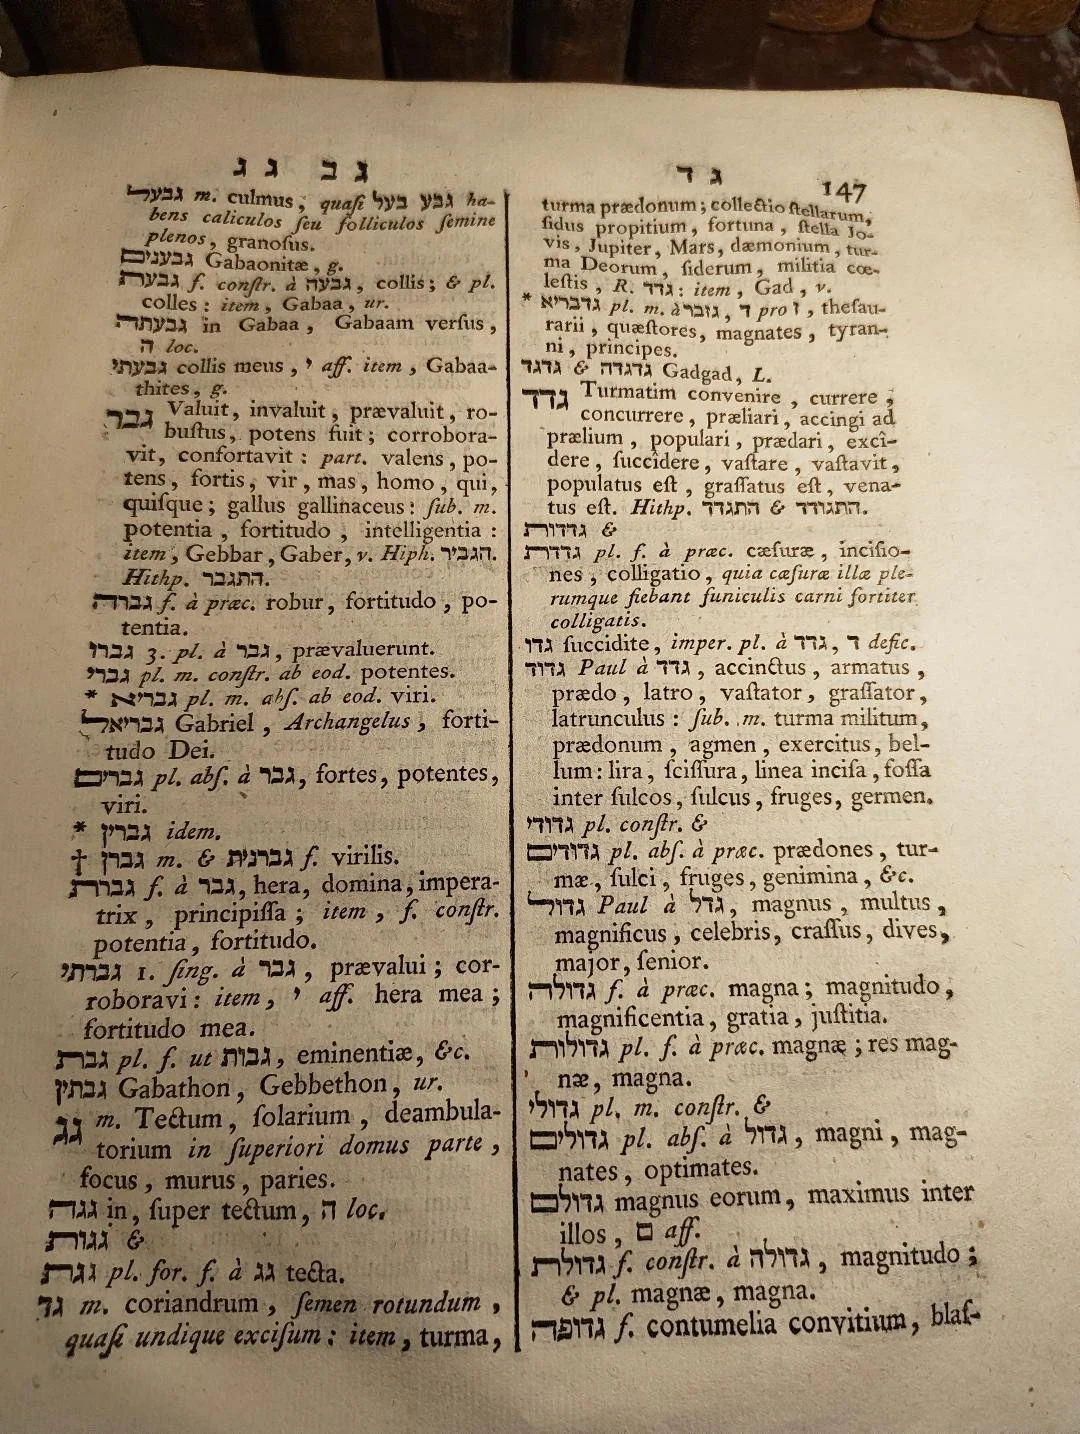 גב גג
גבעל m. culmus, quaſi גבע בעל ha-
bens caliculos ſeu folliculos ſemine
plenos, granoſus.
גבענים Gabaonitæ, g.
גבעת f. conſtr. à גבעה, collis; & pl.
colles: item, Gabaa, ur.
גבעתה in Gabaa, Gabaam verſus,
ה loc.
גבעתי collis meus, י aff. item, Gabaa-
thites, g.
גבר Valuit, invaluit, prævaluit, ro-
buſtus, potens fuit; corrobora-
vit, confortavit: part. valens, po-
tens, fortis, vir, mas, homo, qui,
quiſque; gallus gallinaceus: ſub. m.
potentia, fortitudo, intelligentia:
item, Gebbar, Gaber, v. Hiph. הגביר.
Hithp. התגבר.
גברה f. à præc. robur, fortitudo, po-
tentia.
גברו 3. pl. à גבר, prævaluerunt.
גברי pl. m. conſtr. ab eod. potentes.
* גבריא pl. m. abſ. ab eod. viri.
גבריאל Gabriel, Archangelus, forti-
tudo Dei.
גברים pl. abſ. à גבר, fortes, potentes,
viri.
* גברין idem.
† גברן m. & גברנית f. virilis.
גברת f. à גבר, hera, domina, impera-
trix, principiſſa; item, f. conſtr.
potentia, fortitudo.
גברתי 1. ſing. à גבר, prævalui; cor-
roboravi: item, י aff. hera mea;
fortitudo mea.
גבת pl. f. ut גבות, eminentiæ, &c.
גבתון Gabathon, Gebbethon, ur.
גג m. Tectum, ſolarium, deambula-
torium in ſuperiori domus parte,
focus, murus, paries.
גגה in, ſuper tectum, ה loc.
גגות &
גגת pl. for. f. à גג tecta.
גד m. coriandrum, ſemen rotundum,
quaſi undique exciſum: item, turma,
גד 147
turma prædonum; collectio ſtellarum,
ſidus propitium, fortuna, ſtella Jo-
vis, Jupiter, Mars, dæmonium, tur-
ma Deorum, ſiderum, militia cœ-
leſtis, R. גדד: item, Gad, v.
* גדבריא pl. m. à גזבר, ד pro ז, theſau-
rarii, quæſtores, magnates, tyran-
ni, principes.
גדגד & גדגדה Gadgad, L.
גדד Turmatim convenire, currere,
concurrere, præliari, accingi ad
prælium, populari, prædari, excî-
dere, ſuccîdere, vaſtare, vaſtavit,
populatus eſt, graſſatus eſt, vena-
tus eſt. Hithp. התגדד & התגודד.
גדדות &
גדדת pl. f. à præc. cæſuræ, inciſio-
nes, colligatio, quia cæſuræ illæ ple-
rumque fiebant funiculis carni fortiter
colligatis.
גדו ſuccidite, imper. pl. à גדד, ד defic.
גדוד Paul à גדד, accinctus, armatus,
prædo, latro, vaſtator, graſſator,
latrunculus: ſub. m. turma militum,
prædonum, agmen, exercitus, bel-
lum: lira, ſciſſura, linea inciſa, foſſa
inter ſulcos, ſulcus, fruges, germen.
גדודי pl. conſtr. &
גדודים pl. abſ. à præc. prædones, tur-
mæ, ſulci, fruges, genimina, &c.
גדול Paul à גדל, magnus, multus,
magnificus, celebris, craſſus, dives,
major, ſenior.
גדולה f. à præc. magna; magnitudo,
magnificentia, gratia, juſtitia.
גדולות pl. f. à præc. magnæ; res mag-
næ, magna.
גדולי pl. m. conſtr. &
גדולים pl. abſ. à גדול, magni, mag-
nates, optimates.
גדולם magnus eorum, maximus inter
illos, ם aff.
גדולת f. conſtr. à גדולה, magnitudo;
& pl. magnæ, magna.
גדופה f. contumelia convitium, blaſ-